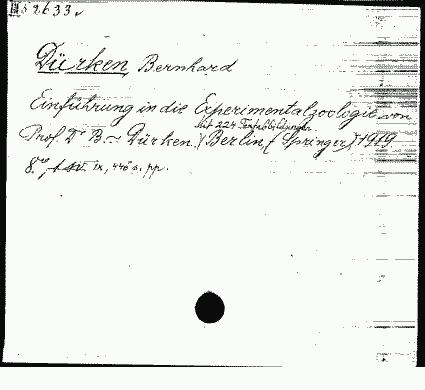 52633
Dürken, Bernhard
Einführung in die Experimentalzoologie von
Mit 224 Textabbildungen
Prof. Dr B. ~ Dürken. Berlin, Springer, 1919.
8°, IX, 446 s. pp.